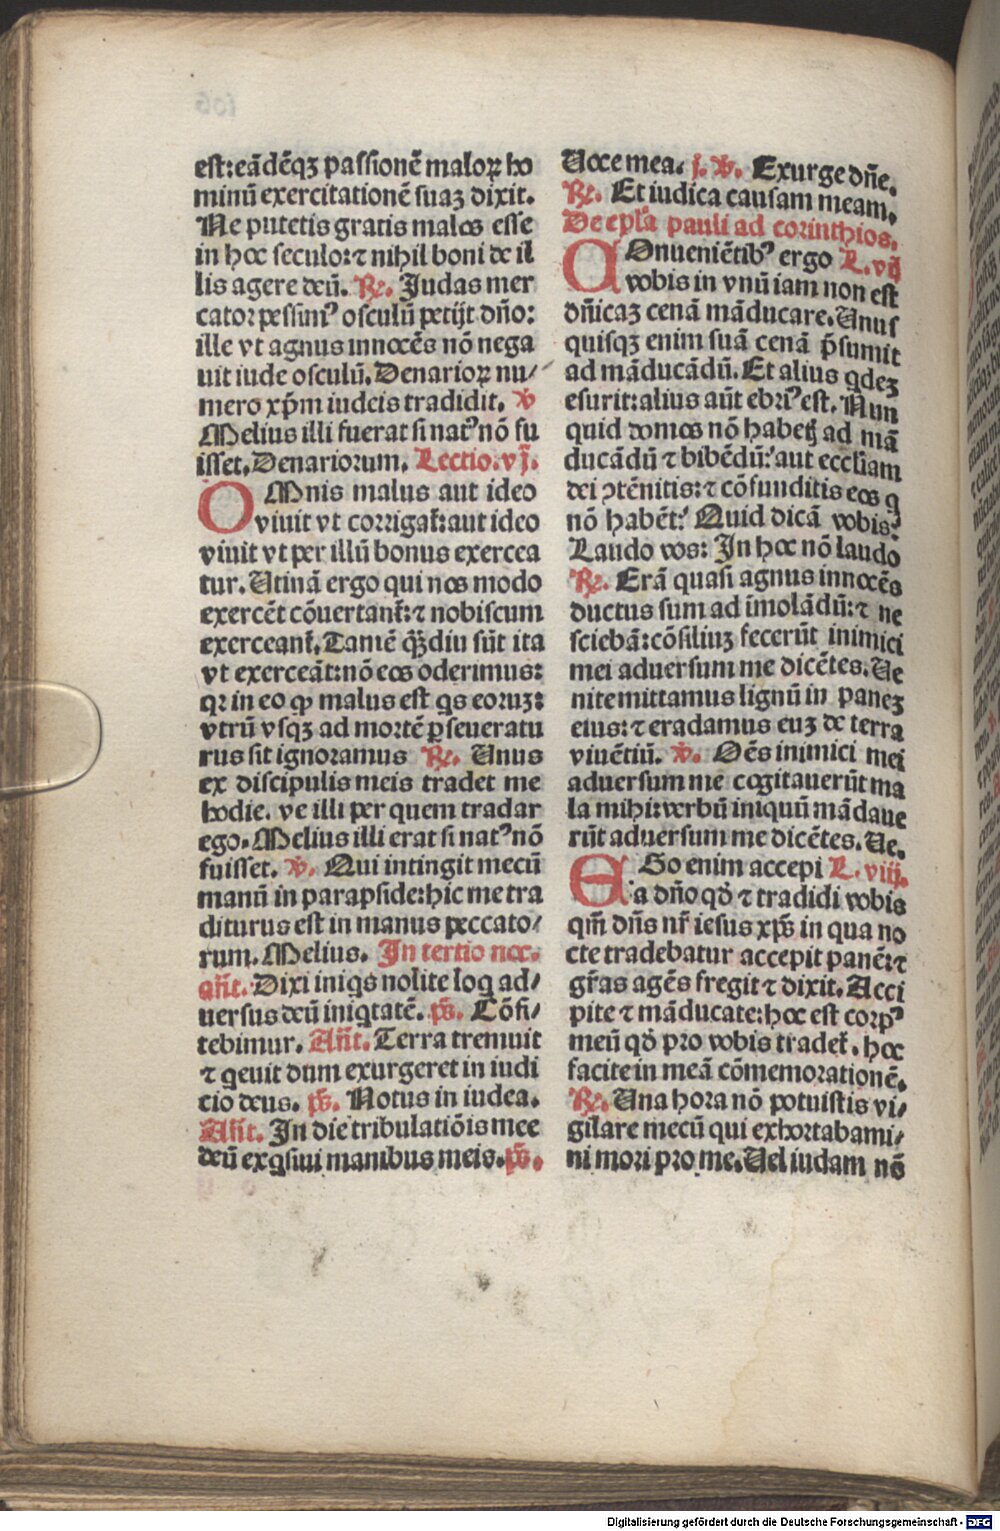 est: eãdẽqꝫ passionẽ maloꝝ ho
minũ exercitationẽ suaꝫ dixit.
Ne putetis gratis malos esse
in hoc seculo: ⁊ nihil boni de il
lis agere deũ. ℞. Judas mer
cator pessimꝰ osculũ petijt dño:
ille vt agnus innocẽs nõ nega
uit iude osculũ. Denarioꝝ nu/
mero xp̃m iudeis tradidit. ℣
Melius illi fuerat si natꝰ nõ fu
isset. Denariorum. Lectio. vj.
OMnis malus aut ideo
viuit vt corrigat̃: aut ideo
viuit vt per illũ bonus exercea
tur. Utinã ergo qui nos modo
exercẽt cõuertant̃: ⁊ nobiscum
exerceant̃. Tamẽ qᷓꝫdiu sũt ita
vt exerceãt: nõ eos oderimus:
qꝛ in eo ꝙ malus est qͥs eoruꝫ:
vtrũ vsqꝫ ad mortẽ ꝑseueratu
rus sit ignoramus ℞. Unus
ex discipulis meis tradet me
hodie. ve illi per quem tradar
ego. Melius illi erat si natꝰ nõ
fuisset. ℣. Qui intingit mecũ
manũ in parapside: hic me tra
diturus est in manus peccato/
rum. Melius. In tertio noc.
añt. Dixi iniqͥs nolite loqͥ ad/
uersus deũ iniqͥtatẽ. p̃s. Cõfi/
tebimur. Añt. Terra tremuit
⁊ qͥeuit dum exurgeret in iudi
cio deus. p̃s. Notus in iudea.
Añt. In die tribulatiõis mee
deũ exqͥsiui manibus meis. p̃s.
Uoce mea. j. ℣. Exurge dñe.
℞. Et iudica causam meam.
De ep̃la pauli ad corinthios.
COnueniẽtibꝰ ergo L. vij
vobis in vnũ iam non est
dñicaꝫ cenã mãducare. Unus
quisqꝫ enim suã cenã p̃sumit
ad mãducãdũ. Et alius qͥdeꝫ
esurit: alius aũt ebriꝰ est. Nun
quid domos nõ habetꝭ ad mã
ducãdũ ⁊ bibẽdũ: aut eccl̃iam
dei ↄtẽnitis: ⁊ cõfunditis eos qͥ
nõ habẽt: Quid dicã vobis:
Laudo vos: In hoc nõ laudo
℞. Erã quasi agnus innocẽs
ductus sum ad ĩmolãdũ: ⁊ ne
sciebã: cõsiliuꝫ fecerũt inimici
mei aduersum me dicẽtes. Ue
nite mittamus lignũ in paneꝫ
eius: ⁊ eradamus euꝫ de terra
viuẽtiũ. ℣. Oẽs inimici mei
aduersum me cogitauerũt ma
la mihi: verbũ iniquũ mãdaue
rũt aduersum me dicẽtes. Ue.
EGo enim accepi L. viij.
a dño qd̾ ⁊ tradidi vobis
qm̃ dñs nr̃ iesus xp̃s in qua no
cte tradebatur accepit panẽ: ⁊
gr̃as agẽs fregit ⁊ dixit. Acci
pite ⁊ mãducate: hoc est corpꝰ
meũ qd̾ pro vobis tradet̃. hoc
facite in meã cõmemorationẽ.
℞. Una hora nõ potuistis vi/
gilare mecũ qui exhortabami/
ni mori pro me. Uel iudam nõ
Digitalisierung gefördert durch die Deutsche Forschungsgemeinschaft - DFG